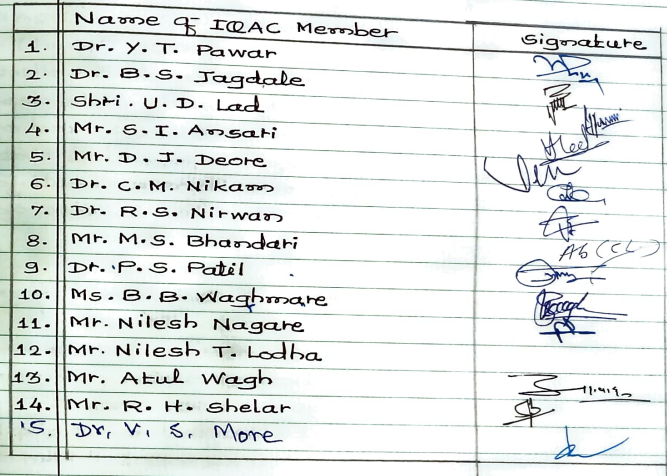 Name of IQAC Member Signature
1. Dr. Y. T. Pawar
2. Dr. B. S. Jagdale
3. Shri. U. D. Lad
4. Mr. S. I. Ansari
5. Mr. D. J. Deore
6. Dr. C. M. Nikam
7. Dr. R. S. Nirwan
8. Mr. M. S. Bhandari Ab (CL)
9. Dr. P. S. Patil
10. Ms. B. B. Waghmare
11. Mr. Nilesh Nagare
12. Mr. Nilesh T. Lodha
13. Mr. Atul Wagh
14. Mr. R. H. Shelar
15. Dr. V. S. More